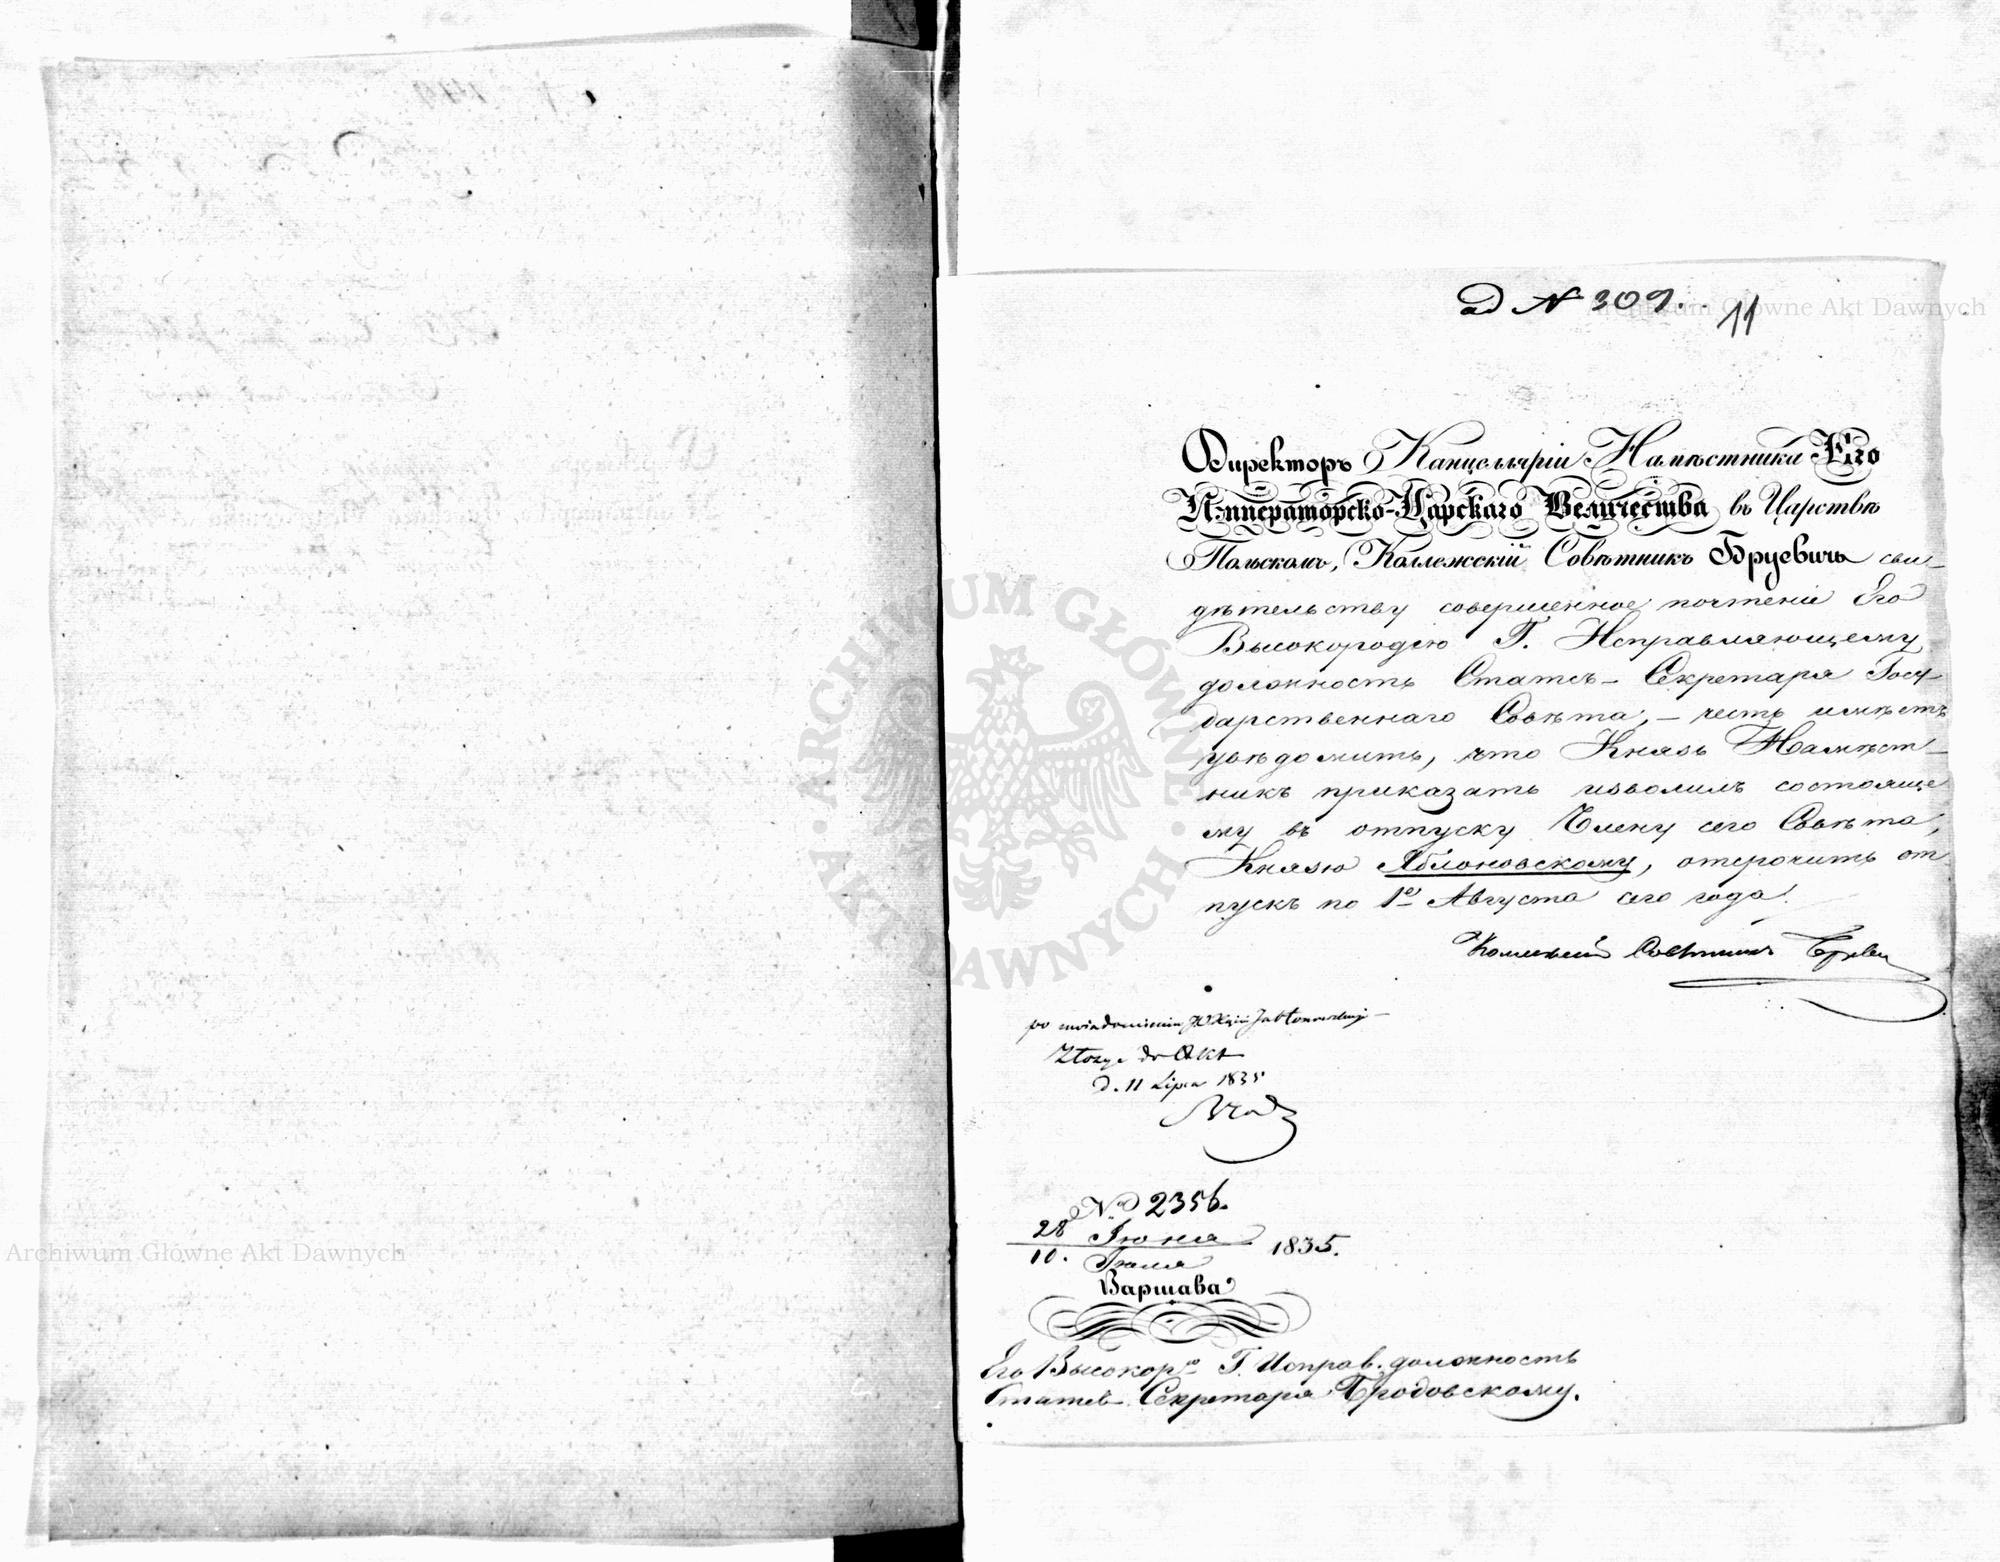 ad N 309.
11
Директоръ Канцеляріи Намѣстника Его
Императорско-Царскаго Величества въ Царствѣ
Польскомъ, Коллежскій Совѣтникъ Бруевичъ сви-
дѣтельству совершенное почтеніе Его
Высокородію Г. Исправляющему
должность Статсъ-Секретаря Госу-
дарственнаго Совѣта, - честь имѣетъ
увѣдомить, что Князь Намѣст-
никъ приказать изволилъ состояще
му въ отпуску Члену сего Совѣта,
Князю Яблоновскому, отсрочить от
пускъ по 1е Августа сего года.
Коллежскій Совѣтникъ
po uwiadomieniu JO Xcia Jabłonowskiego
Złożyć do Akt
d. 11 Lipca 1835
№ 2356.
28 Іюня
10. Іюля
1835.
Варшава
Его Высокор. Г. Исправ. должность
Статсъ Секретаря Бродовскому.
ARCHIWUM GŁÓWNE AKT DAWNYCH
Archiwum Główne Akt Dawnych
Archiwum Główne Akt Dawnych